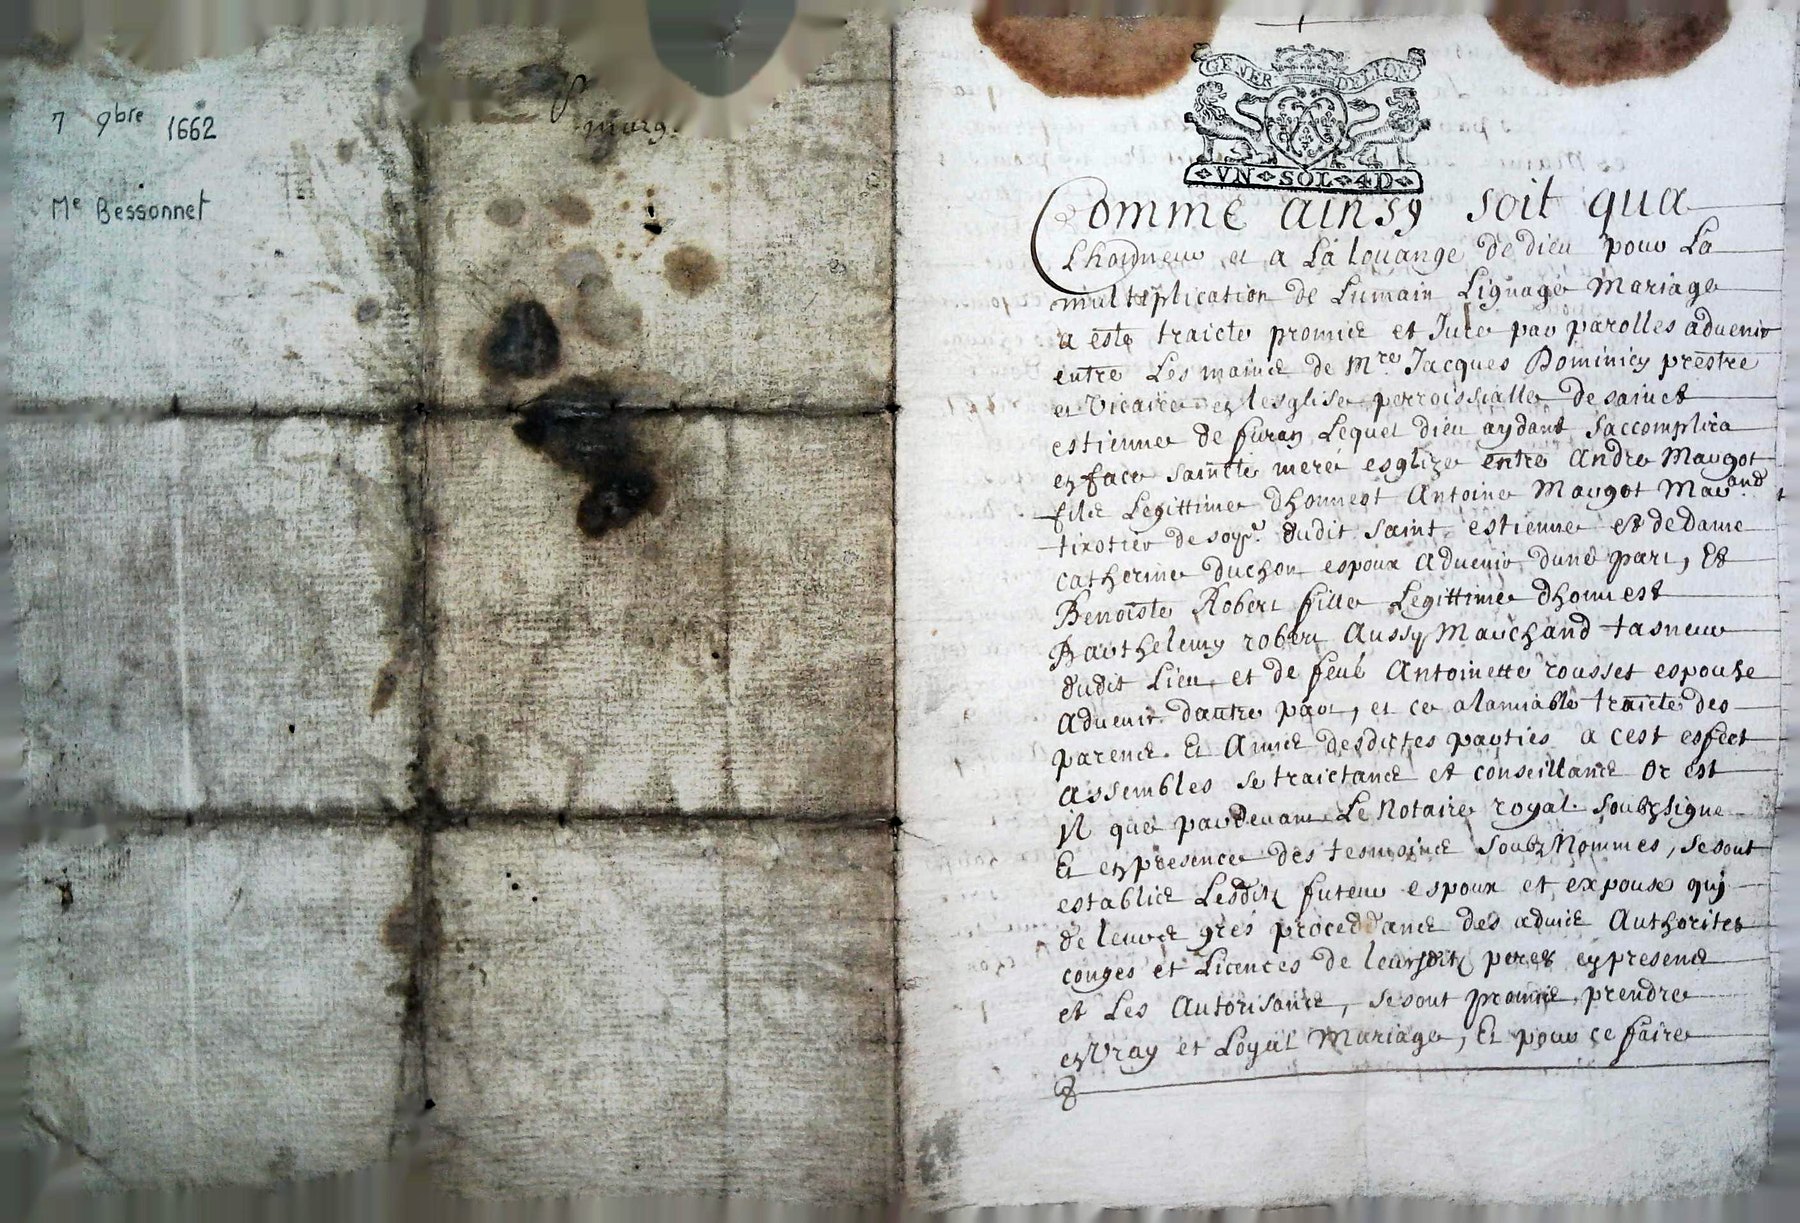 7 9bre 1662
Me Bessonnet
marg.
GENER DELION
VN SOL 4D
Comme ainsy soit qua
Lhonneur et a La louange de dieu pour La
multiplication de Lumain Lignage Mariage
a este traicte promis et Jure par parolles advenir
entre Les mains de Mre Jacques Dominicy prestre
et Vicaire en lesglise perroissialle de sainct
estienne de furan Lequel dieu aydant saccomplira
en face saincte mere esglize entre Andre Maugot
filz Legittime dhonnest Antoine Maugot Marand
tixotier de soye dudit saint estienne et de Dame
Catherine duchon espoux advenir dune part, Et
Benoiste Robert fille Legittime dhonnest
Barthelemy robert aussy Marchand tasneur
dudit Lieu et de feue Antoinette rousset espouze
advenir dautre part, et ce alamiable traicte des
parens Et Amis desdictes parties a cest esfect
Assembles se traictans et conseillans Or est
Il que pardevant Le Notaire royal soubzsigne
Et en presence des tesmoins soubz Nommes, se sont
establis Lesditz futeur espoux et expouse quj
de leurs gres proceddans des advis Authorites
conges et Licences de leursditz peres en presens
et Les Autorisans, se sont promis prendre
en vray et Loyal Mariage, Et pour ce faire